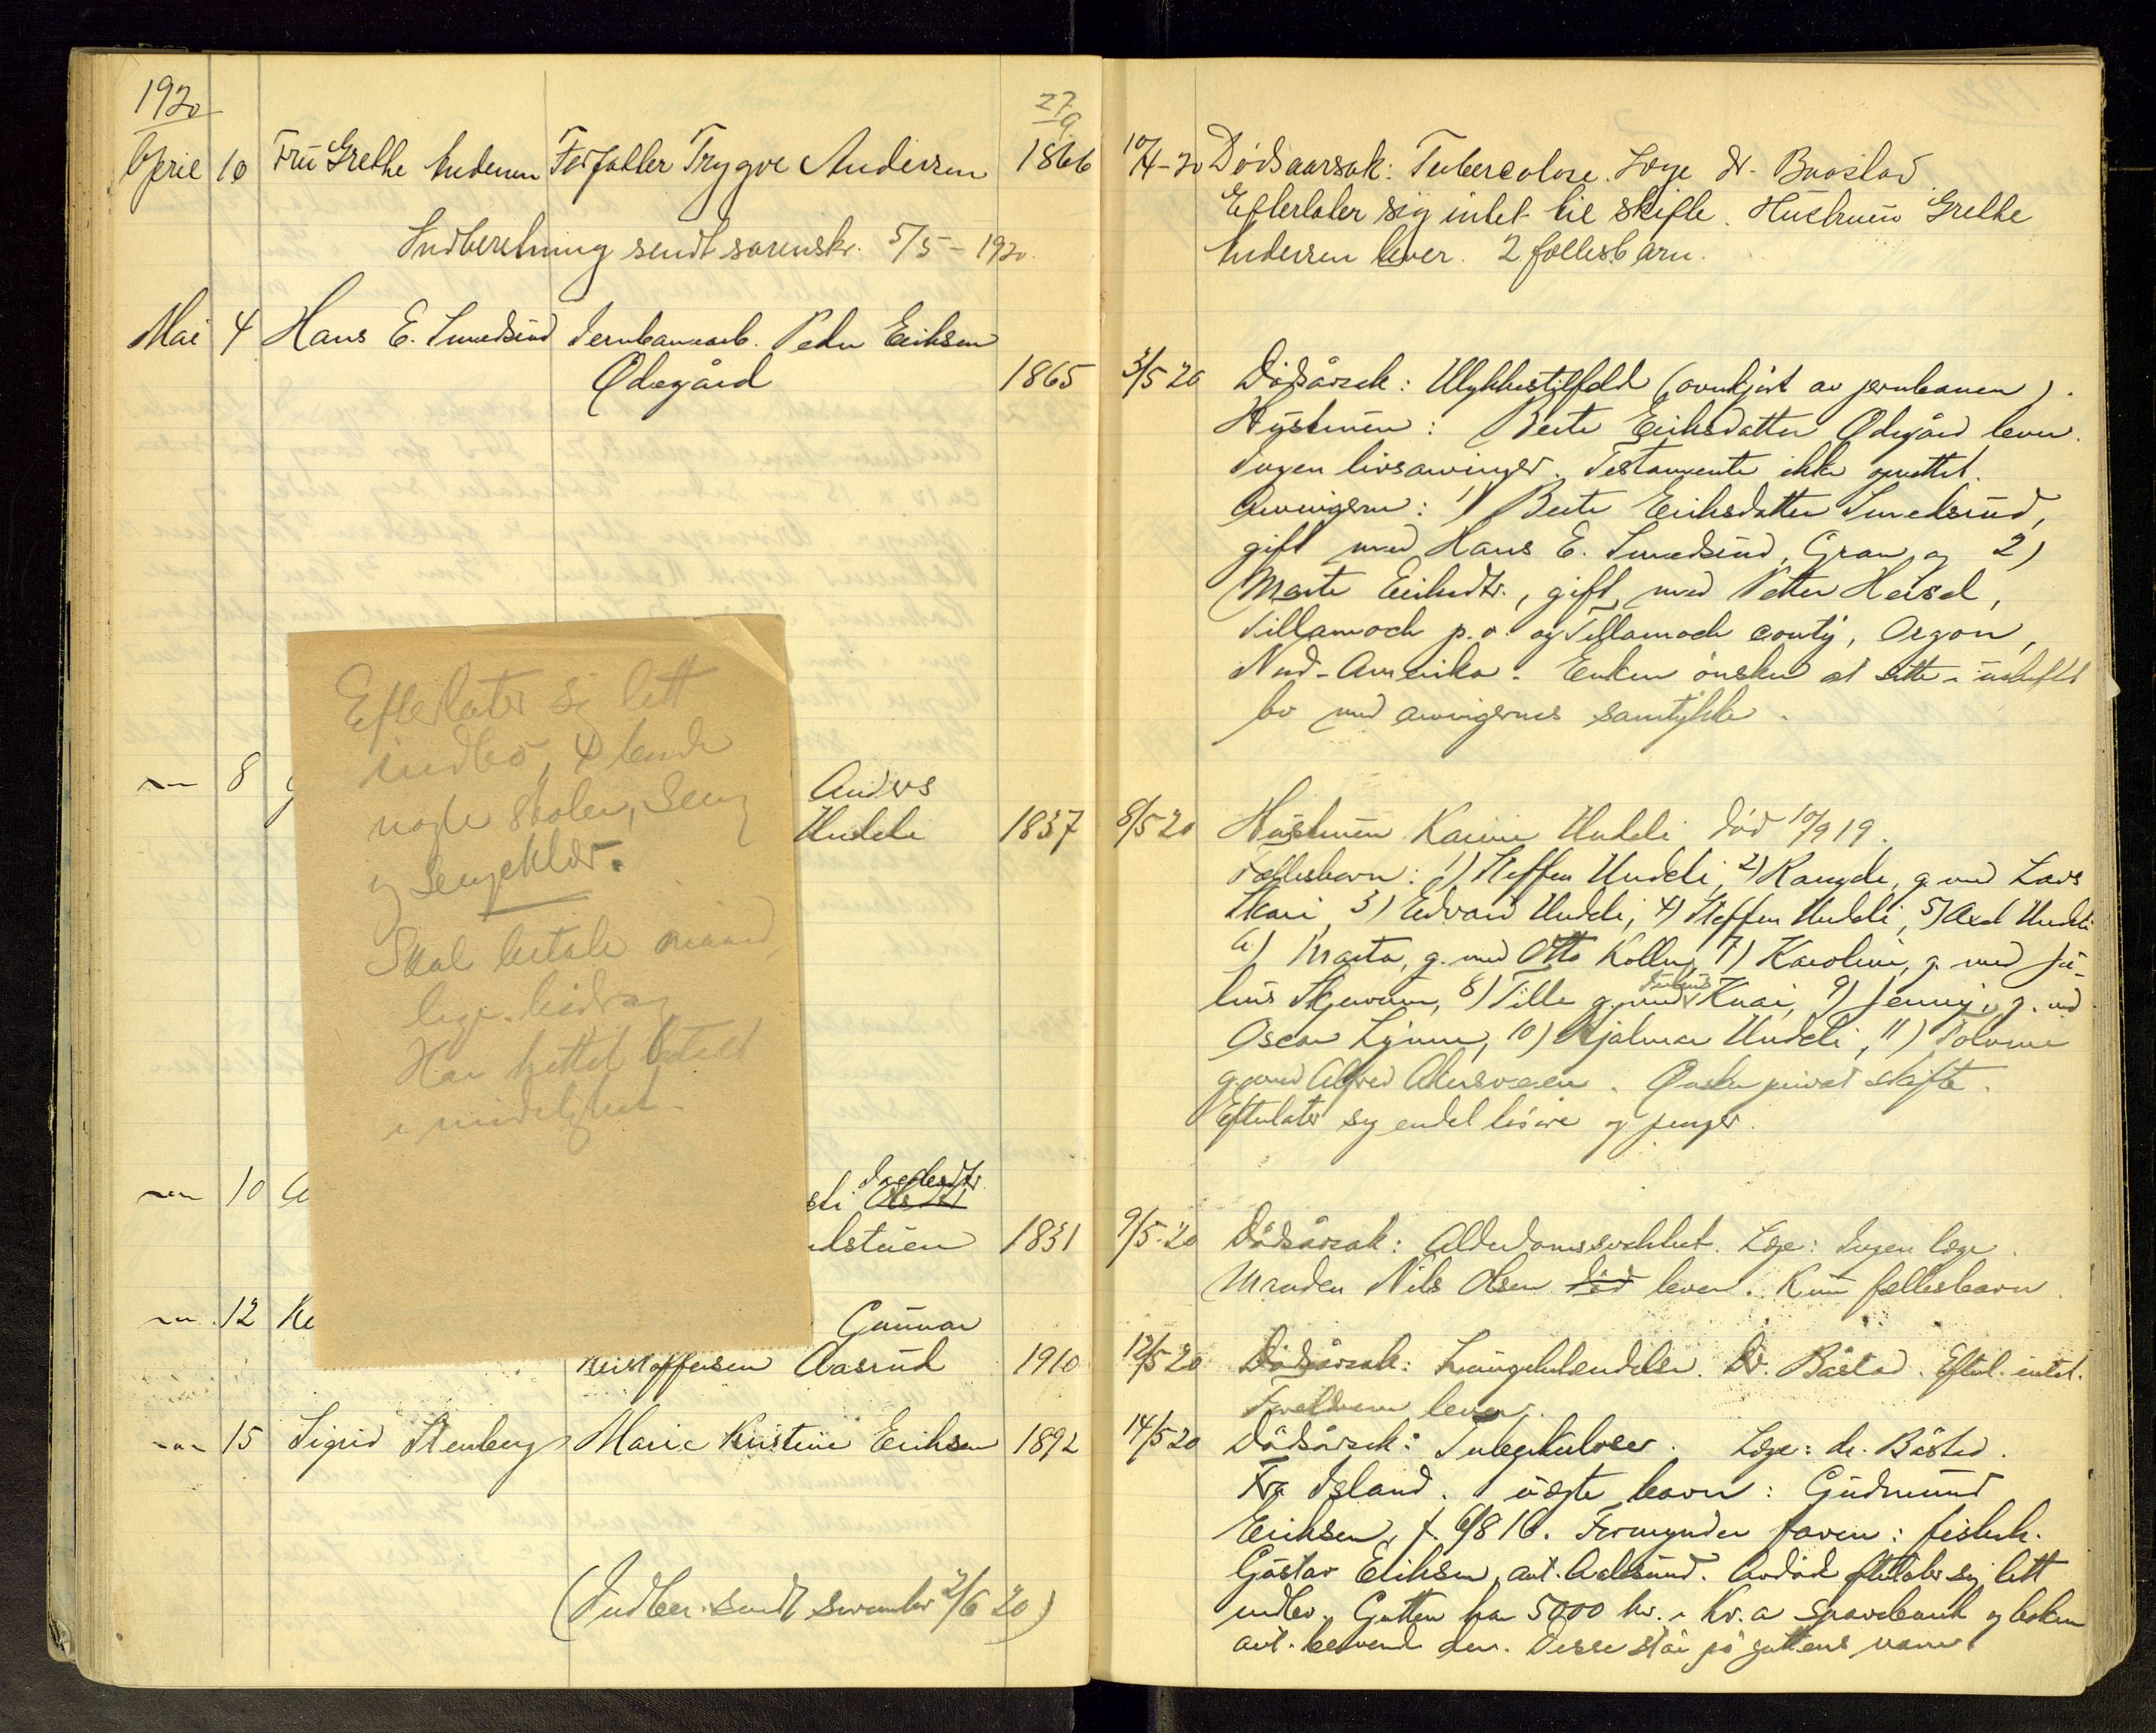 1920
27/9
April 10 Fru Grethe Andersen Forfatter Trygve Andersen 1866
Indberetning sendt sorenskr. 5/5 - 1920.
Mai 4 Hans E. Smedsrud Jernbanearb. Peder Eriksen
Ødegård 1865
Efterlater sig litt
indbo,
nogle stoler, seng
og sengeklær.
Skal betale maaned,
lige bidrag
Har hittil betalt
i mindelighet
8 Anders
Undeli 1837
10 Ingebrdtr.
1831
12 Gunnar
Kristoffersen Aasrud 1910
15 Sigrid Stenberg Marie Kristine Eriksen 1892
(Indber. sendt sorenskr 2/6 20)
10/4-20 Dødsaarsak: Tuberculose. Læge dr. Baastad
Efterlater sig intet til skifte. Hustruen Grethe
Andersen lever. 2 fællesbarn.
3/5 20 Dødsårsak: Ulykkestilfeld (overkjørt av jernbanen).
Hustruen: Berte Eriksdatter Ødegård lever.
Ingen livsarvinger. Testamente ikke oprettet.
Arvingerne: 1) Berte Eriksdatter Smedsrud,
gift med Hans E. Smedsrud, Gran og 2)
Marte Eriksdtr., gift med Petter Heisel,
Tillamock p.o. og Tillamock conty, Oregon,
Nord-Amerika. Enken ønsker at sitte i uskiftet
bo med arvingernes samtykke.
8/5 20 Hustruen Karine Undeli død 10/9 19.
Fællesbarn: 1) Steffen Undeli, 2) Rangde, g. med Lars
3) Edvard Undeli, 4) Steffen Undeli, 5) Axel Undeli
6) Marta, g. med Otto 7) Karoline, g. med Ju-
lius 8) Tilla g. med Julius 9) Jenny, g. med
Oscar 10) Hjalmar Undeli, 11)
g. med Alfred Akersveen. Ønsker privat skifte.
Efterlater sig endel løsøre og penger.
9/5-20 Dødsårsak: Alderdomssvakhet. Læge: Ingen læge.
Manden Nils Olsen død lever. Kun fællesbarn.
12/5 20 Dødsårsak: Lungebetendelse. Dr. Båstad. Efterl. intet.
Forældrene lever.
14/5 20 Dødsårsak: Tuberkulose. Læge: dr. Båstad.
Fra Island. 1 uægte barn: Gudmund
Eriksen, f. 6/8 16. Formynder faren: fiskerh.
Gustav Eriksen, ant. Aalesund. Avdøde efterlater sig litt
indbo. Gutten har 5000 kr. i Kr.a Sparebank og boken
ant. beroende der. Disse står på guttens navn